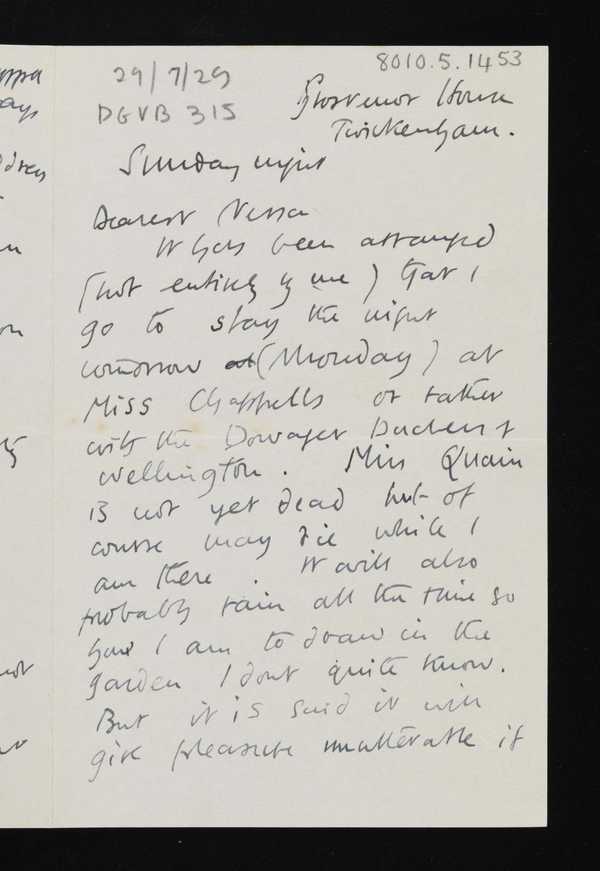 8010.5.1453
29/7/29
DGVB 315
Grosvenor House
Twickenham.
Sunday night
Dearest Nessa
It has been arranged
(not entirely by me) that I
go to stay the night
tomorrow (Monday) at
Miss Chappells or rather
with the Dowager Duchess of
Wellington. Miss Quain
is not yet dead but of
course may die while I
am there. It will also
probably rain all the time so
how I am to draw in the
garden I dont quite know.
But it is said it will
give pleasure unutterable if